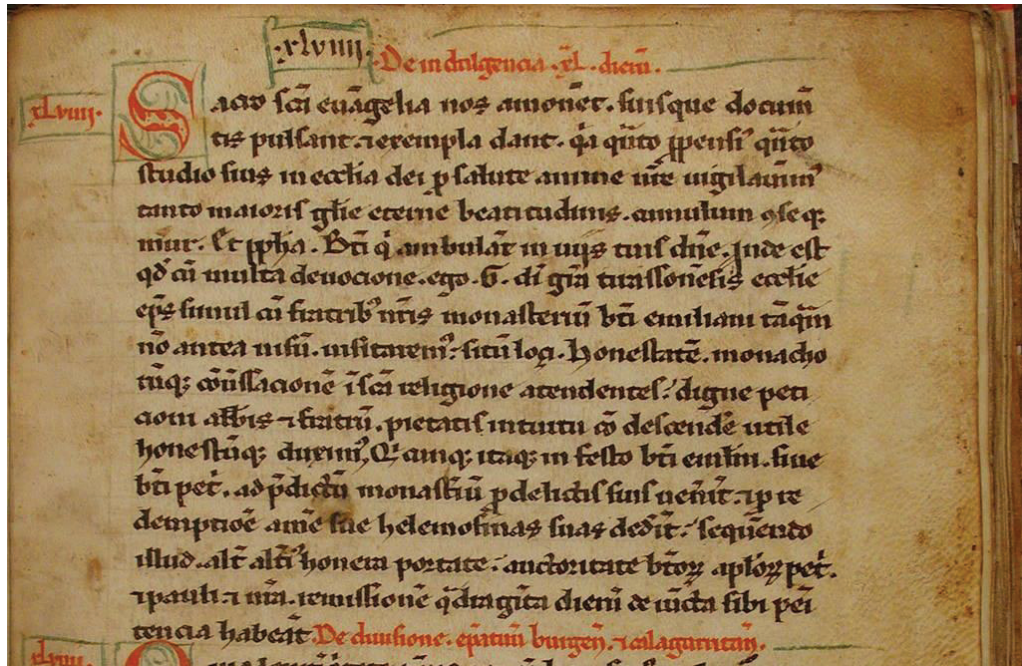 ·xlviiii·
De indulgencia ·xL· dieru᷒.
xLviiii· Sacro sc̄a eua̅gelia nos amone̅t. suisque docum̅
tis pulsant. ⁊ exempla dant. q̇a qua̅to ꝓpensiꝰ qua̅to
studio suis in ecc̅lia dei ꝓ salute anime ur̅e uigilauim̅ꝰ
tanto maioris gl̅ie eterne beatitudinis. cumulum ꝯseq̇
mur. Et ꝓph̅ia. Bt̅i q̇ ambula̅t in uijs tuis dn̅e. Inde est
qd̅ cu̅ multa deuocione. ego. G. di̅ gr̅a tirassone̅sis eccl̅ie
ep̅s simul cu̅ fratribꝰ nr̅is monasteriu̅ bt̅i emiliani ta̅qua̅
no̅ antea uisu̅. uisitaremꝰ. situ̅ loci. honestate̅. monacho
ru̅qꝫ co̅u̅sacione̅ i̅ sc̄a religione atendentes. digne peti
cioni abb̅is ⁊ fratru̅. pietatis intuitu co̅descende̅ utile
honestu̅qꝫ duximꝰ, Quicunqꝫ itaqꝫ in festo bt̅i emil̅ni. siue
bt̅i pet̅. ad p̅dictu̅ monast̅iu̅ ꝓ delictis suis uen̅int. ⁊ ꝓ re
demptio̅e anim̅e sue helemosinas suas ded̅it. seque̅ndo
illud. alt̅ alt̅iꝰ honera portate. auctoritate bt̅oꝝ apl̅oꝝ pet̅.
⁊ pauli ⁊ nr̅a. remissione̅ q̅dragi̅ta dieru̅ de iu̅cta sibi peni
tencia habea̅t. De diuisione. ep̅atuu̅ burgen̅. ⁊ calagurritan̅.